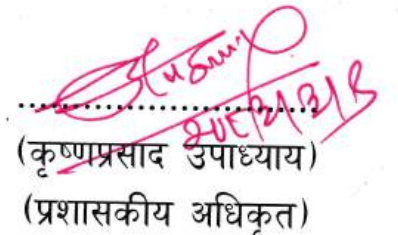 (कृष्णप्रसाद उपाध्याय)
(प्रशासकीय अधिकृत)